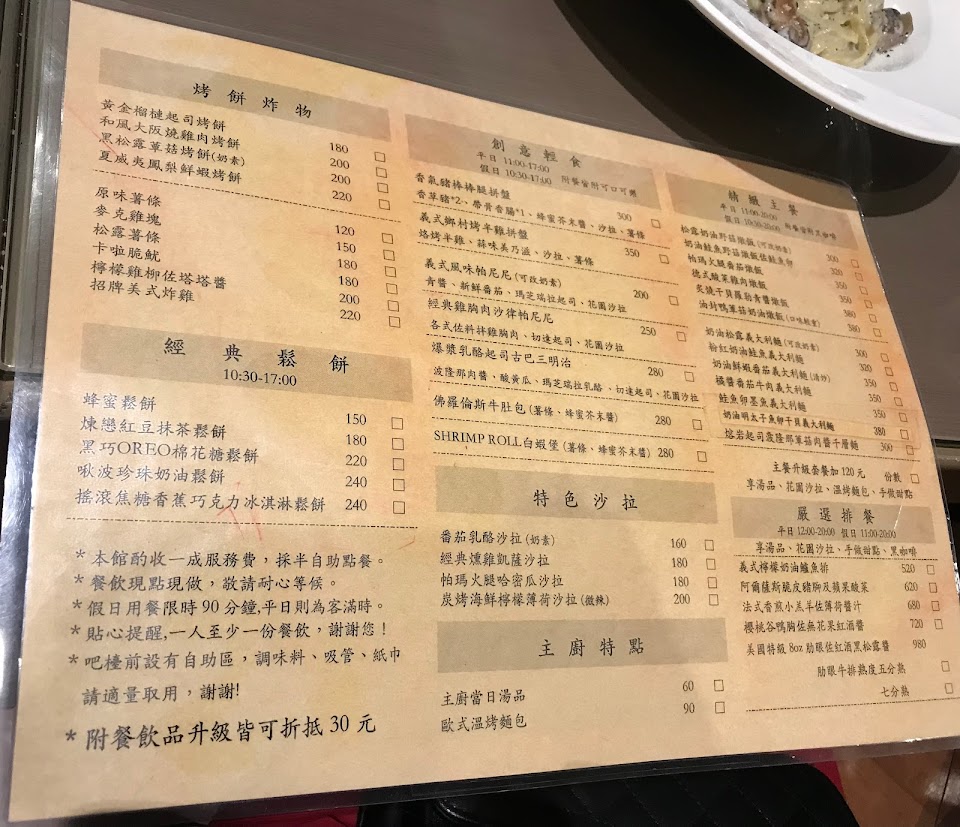 烤餅炸物
黃金榴槤起司烤餅 180 □
和風大阪燒雞肉烤餅 200 □
黑松露蕈菇烤餅(奶素) 200 □
夏威夷鳳梨鮮蝦烤餅 220 □
原味薯條 120 □
麥克雞塊 150 □
松露薯條 180 □
卡啦脆魷 180 □
檸檬雞柳佐塔塔醬 200 □
招牌美式炸雞 220 □
經典鬆餅
10:30-17:00
蜂蜜鬆餅 150 □
煉戀紅豆抹茶鬆餅 180 □
黑巧OREO棉花糖鬆餅 220 □
啾波珍珠奶油鬆餅 240 □
搖滾焦糖香蕉巧克力冰淇淋鬆餅 240 □
*本館酌收一成服務費，採半自助點餐。
*餐飲現點現做，敬請耐心等候。
*假日用餐限時90分鐘,平日則為客滿時。
*貼心提醒,一人至少一份餐飲，謝謝您！
*吧檯前設有自助區，調味料、吸管、紙巾
請適量取用，謝謝!
*附餐飲品升級皆可折抵30元
創意輕食
平日 11:00-17:00
假日 10:30-17:00 附餐皆附可口可樂
香氣豬棒棒腿拼盤 300 □
香草豬*2、帶骨香腸*1、蜂蜜芥末醬、沙拉、薯條
義式鄉村烤半雞拼盤 350 □
烙烤半雞、蒜味美乃滋、沙拉、薯條
義式風味帕尼尼(可改奶素) 200 □
青醬、新鮮番茄、瑪芝瑞拉起司、花園沙拉
經典雞胸肉沙律帕尼尼 250 □
各式佐料拌雞胸肉、切達起司、花園沙拉
爆漿乳酪起司古巴三明治 280 □
波隆那肉醬、酸黃瓜、瑪芝瑞拉乳酪、切達起司、花園沙拉
佛羅倫斯牛肚包(薯條、蜂蜜芥末醬) 280 □
SHRIMP ROLL白蝦堡(薯條、蜂蜜芥末醬) 280 □
特色沙拉
番茄乳酪沙拉(奶素) 160 □
經典燻雞凱薩沙拉 180 □
帕瑪火腿哈密瓜沙拉 180 □
炭烤海鮮檸檬薄荷沙拉(微辣) 200 □
主廚特點
主廚當日湯品 60 □
歐式溫烤麵包 90 □
精緻主餐
平日 11:00-20:00
假日 10:30-20:00 附餐皆附黑咖啡
松露奶油野菇燉飯(可改奶素) 300 □
奶油鮭魚野菇燉飯佐鮭魚卵 320 □
帕瑪火腿番茄燉飯 350 □
德式酸菜雞肉燉飯 350 □
炙燒干貝羅勒青醬燉飯 380 □
油封鴨蕈菇奶油燉飯(口味較重) 380 □
奶油松露義大利麵(可改奶素) 300 □
粉紅奶油鮭魚義大利麵 320 □
奶油鮮蝦番茄義大利麵(清炒) 350 □
橘醬番茄牛肉義大利麵 350 □
鮭魚卵墨魚義大利麵 350 □
奶油明太子魚卵干貝義大利麵 380 □
熔岩起司波隆那蕈菇肉醬千層麵 300 □
主餐升級套餐加120元 份數 □
享湯品、花園沙拉、溫烤麵包、手做甜點
嚴選排餐
平日 12:00-20:00 假日 11:00-20:00
享湯品、花園沙拉、手做甜點、黑咖啡
義式檸檬奶油鱸魚排 520 □
阿爾薩斯脆皮豬腳及蘋果酸菜 620 □
法式香煎小羔羊佐薄荷醬汁 680 □
櫻桃谷鴨胸佐無花果紅酒醬 720 □
美國特級8oz肋眼佐紅酒黑松露醬 980
肋眼牛排熟度五分熟 □
七分熟 □